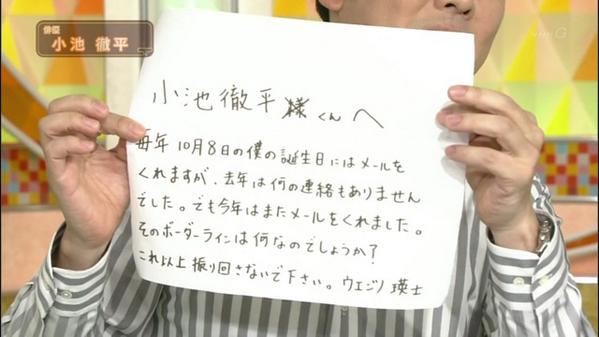 俳優
小池 徹平
小池徹平様くんへ
毎年10月8日の僕の誕生日にはメールを
くれますが、去年は何の連絡もありません
でした。でも今年はまたメールをくれました。
そのボーダーラインは何なのでしょうか?
これ以上振り回さないで下さい。ウエンツ 瑛士